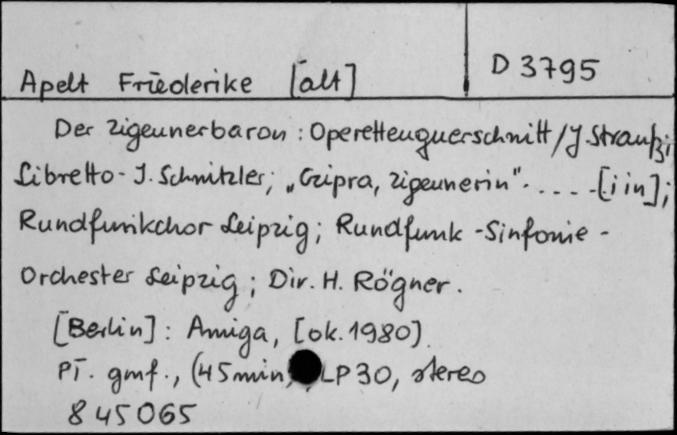 D 3795
Apelt Friederike [alt]
Der Zigeunerbaron : Operettenquerschnitt / J. Strauß;
Libretto - I. Schnitzler; „Czipra, Zigeunerin" ..... [i in];
Rundfunkchor Leipzig; Rundfunk - Sinfonie -
Orchester Leipzig; Dir. H. Rögner.
[Berlin] : Amiga, [ok. 1980]
Pł. gmf., (45 min), LP 30, stereo
845065